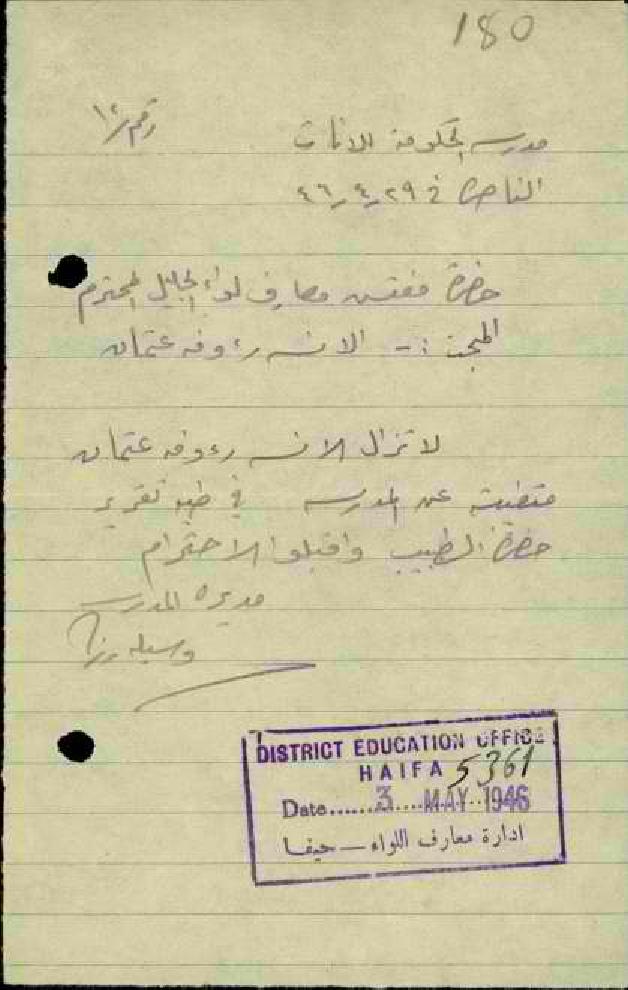 180
رقم/١٢
مدرسه الحكومة للاناث
الناصره في ٢٩_٤_٤٦
حضرة مفتش معارف لواء الجليل المحترم
المبحث :- الانسه رءوفه عثمان
لا تزال الانسه رءوفه عثمان
متغيبة عن المدرسه في طيه تقرير
حضرة الطبيب واقبلوا الاحترام
مديرة المدرسه
وسيله
DISTRICT EDUCATION OFFICE
HAIFA 5361
Date......3....MAY..1946
ادارة معارف اللواء — حيفا